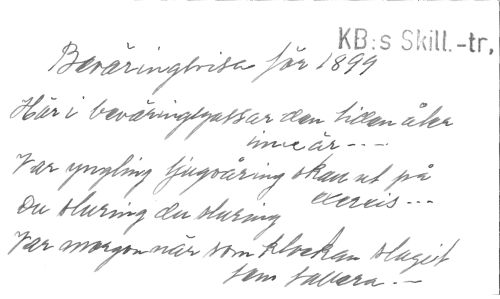 KB:s Skill.-tr.
Beväringsvisa för 1899
Här i beväringsgossar den tiden åter
inne är - - -
Var yngling tjugoåring skall ut på
exercis - - -
Du sluring du sluring
Var morgon när som klockan slagit
fem